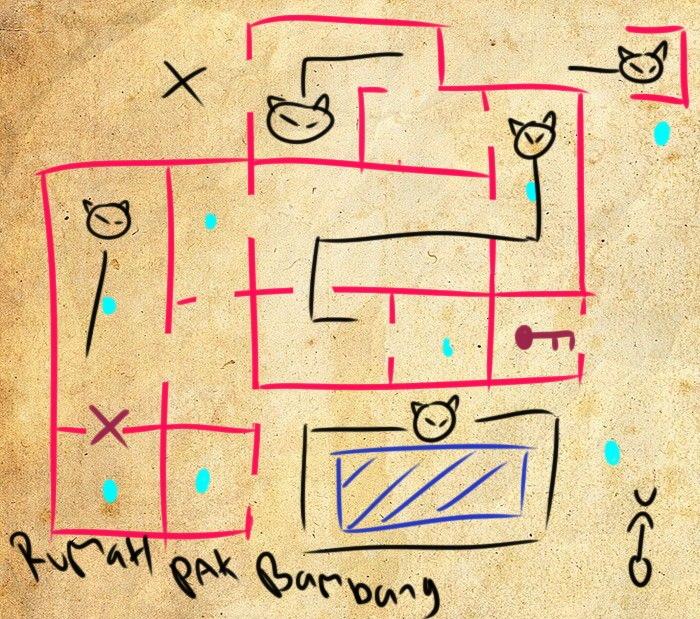 Rumah pak Bambang